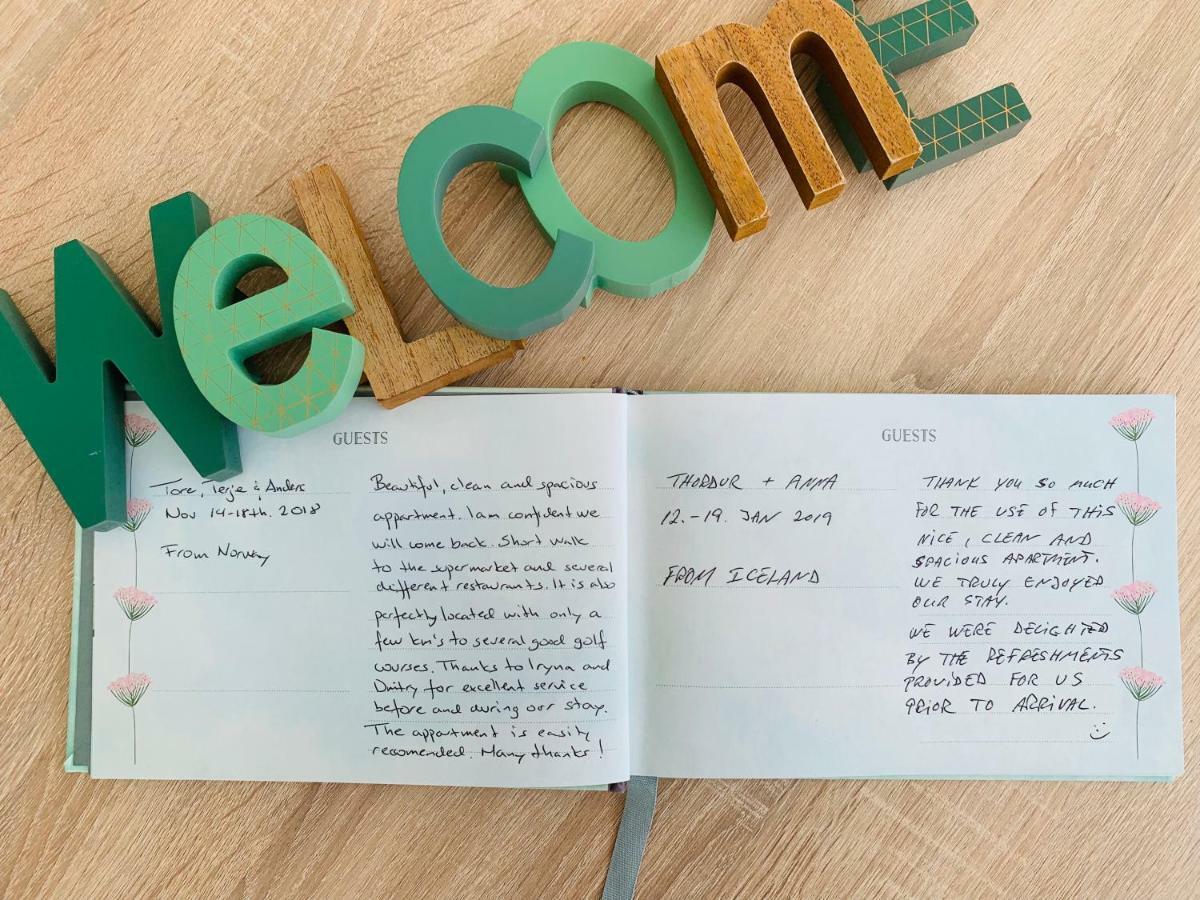 WeLcOmE
GUESTS
Tore, Terje & Anders
Nov 14-18th. 2018
From Norway
Beautiful, clean and spacious
appartment. I am confident we
will come back. Short walk
to the supermarket and several
different restaurants. It is also
perfectly located with only a
few km's to several good golf
courses. Thanks to Iryna and
Dmitry for excellent service
before and during our stay.
The appartment is easily
recomended. Many thanks!
GUESTS
THORDUR + ANNA
12.-19. JAN 2019
FROM ICELAND
THANK YOU SO MUCH
FOR THE USE OF THIS
NICE, CLEAN AND
SPACIOUS APARTMENT.
WE TRULY ENJOYED
OUR STAY.
WE WERE DELIGHTED
BY THE REFRESHMENTS
PROVIDED FOR US
PRIOR TO ARRIVAL.